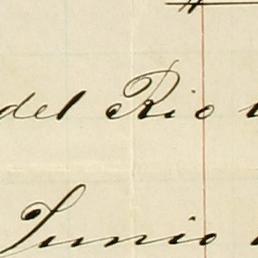 del Rio
Junio